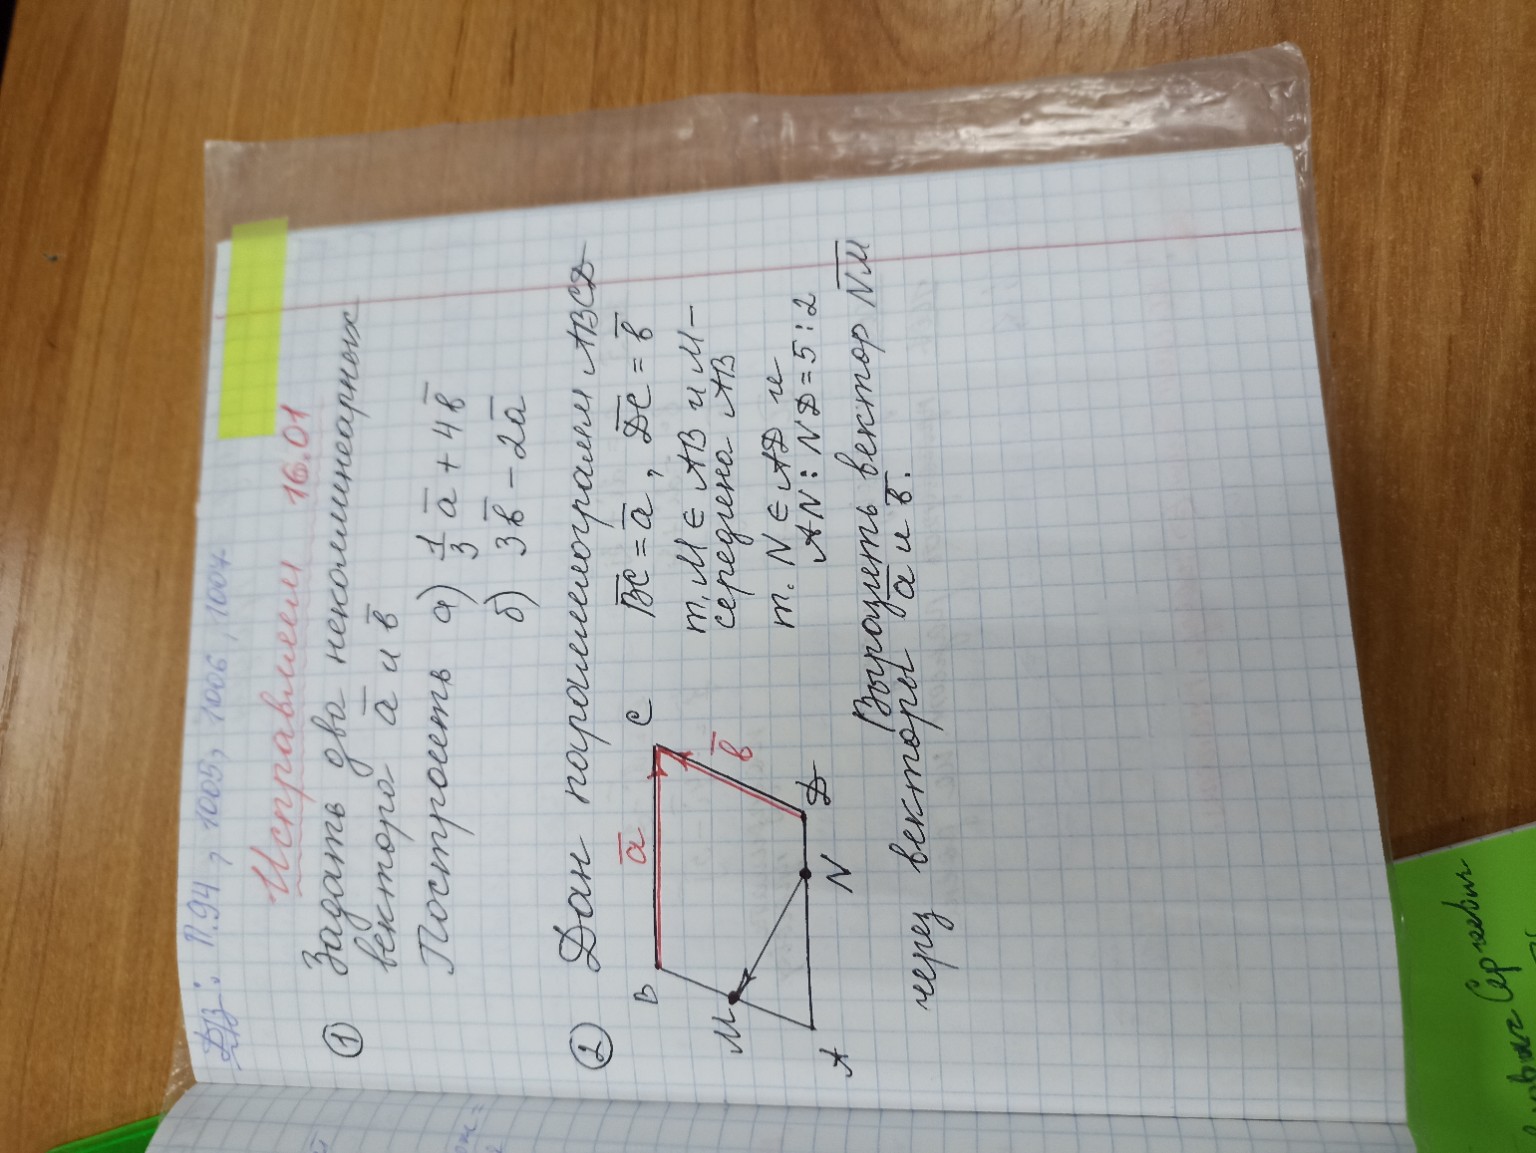 ДЗ: П.94, 1005, 1006, 1007
Исправляем 16.01
① Задать два неколлинеарных
вектора a̅ и b̅
Построить а) 1/3 a̅ + 4b̅
б) 3b̅ - 2a̅
② Дан параллелограмм ABCD
B
a̅
C
b̅
M
A
N
D
B̅C̅ = a̅, D̅C̅ = b̅
т. M ∈ AB и M -
середина AB
т. N ∈ AD и
AN : ND = 5 : 2
Выразить вектор N̅M̅
через векторы a̅ и b̅.
Сергеевич